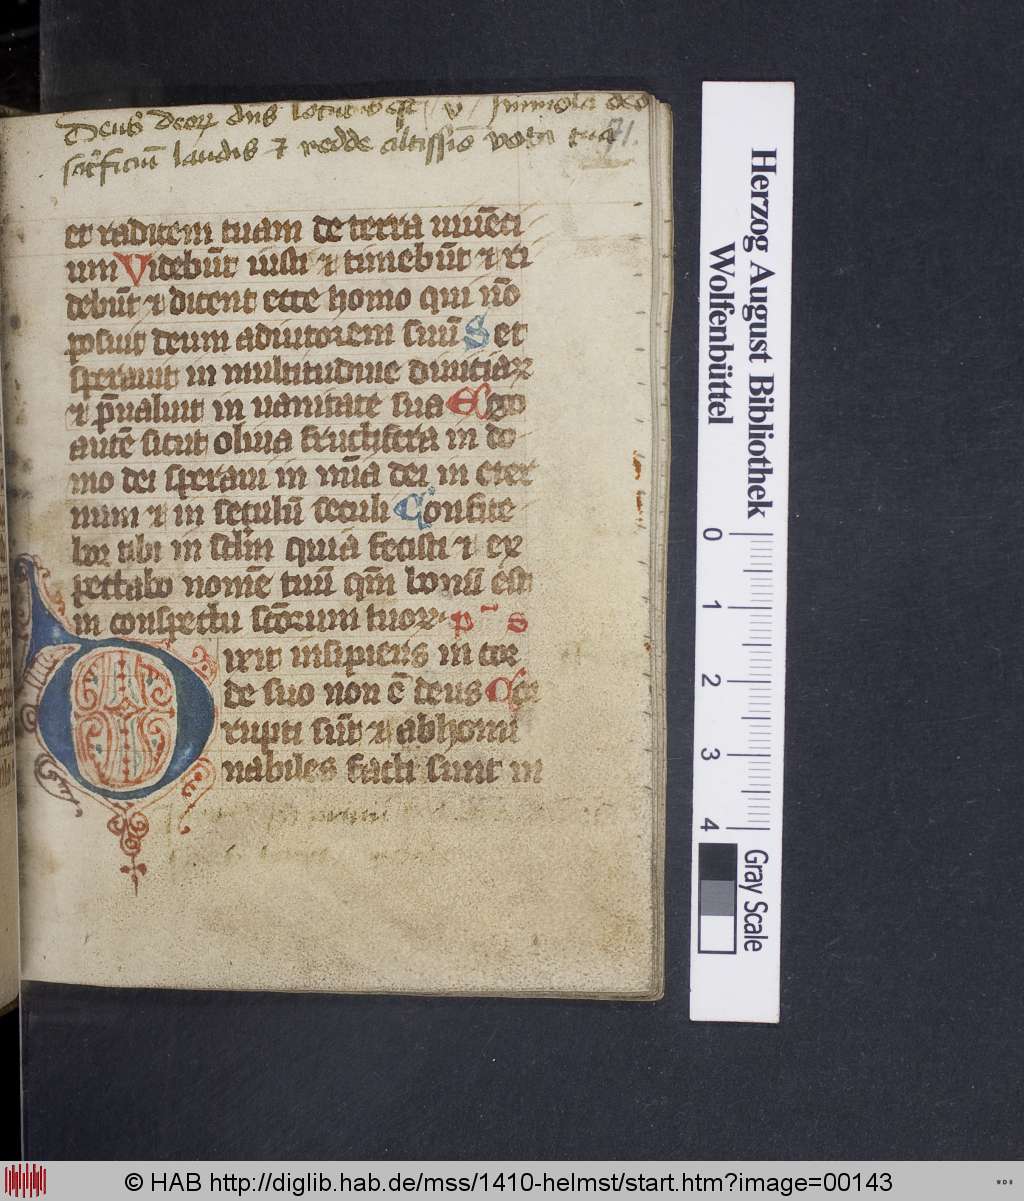 Deus deoꝝ dn̄s locutꝰ est / v / Immola deo
sac̄ficiū laudis ⁊ redde altissīo vota tua
71.
et radicem tuam de terra uiuēti
um Videbūt iusti ⁊ timebūt ⁊ ri
debūt ⁊ dicent ecce homo qui nō
posuit deum adiutorem suū S et
sperauit in multitudine diuitiaꝝ
⁊ p̄ualuit in uanitate sua Ego
autē sicut oliua fructifera in do
mo dei speraui in mīa dei in eter
num ⁊ in seculū seculi Confite
bor tibi in sclm̄ quia fecisti ⁊ ex
pectabo nomē tuū qm̄ bonū est
in conspectu scōrum tuoꝝ. p̄ s
Dixit insipiens in cor
de suo non ē deus Cor
rupti sūt ⁊ abhomi
nabiles facti sunt in
Herzog August Bibliothek
Wolfenbüttel
0 1 2 3 4
Gray Scale
© HAB http://diglib.hab.de/mss/1410-helmst/start.htm?image=00143